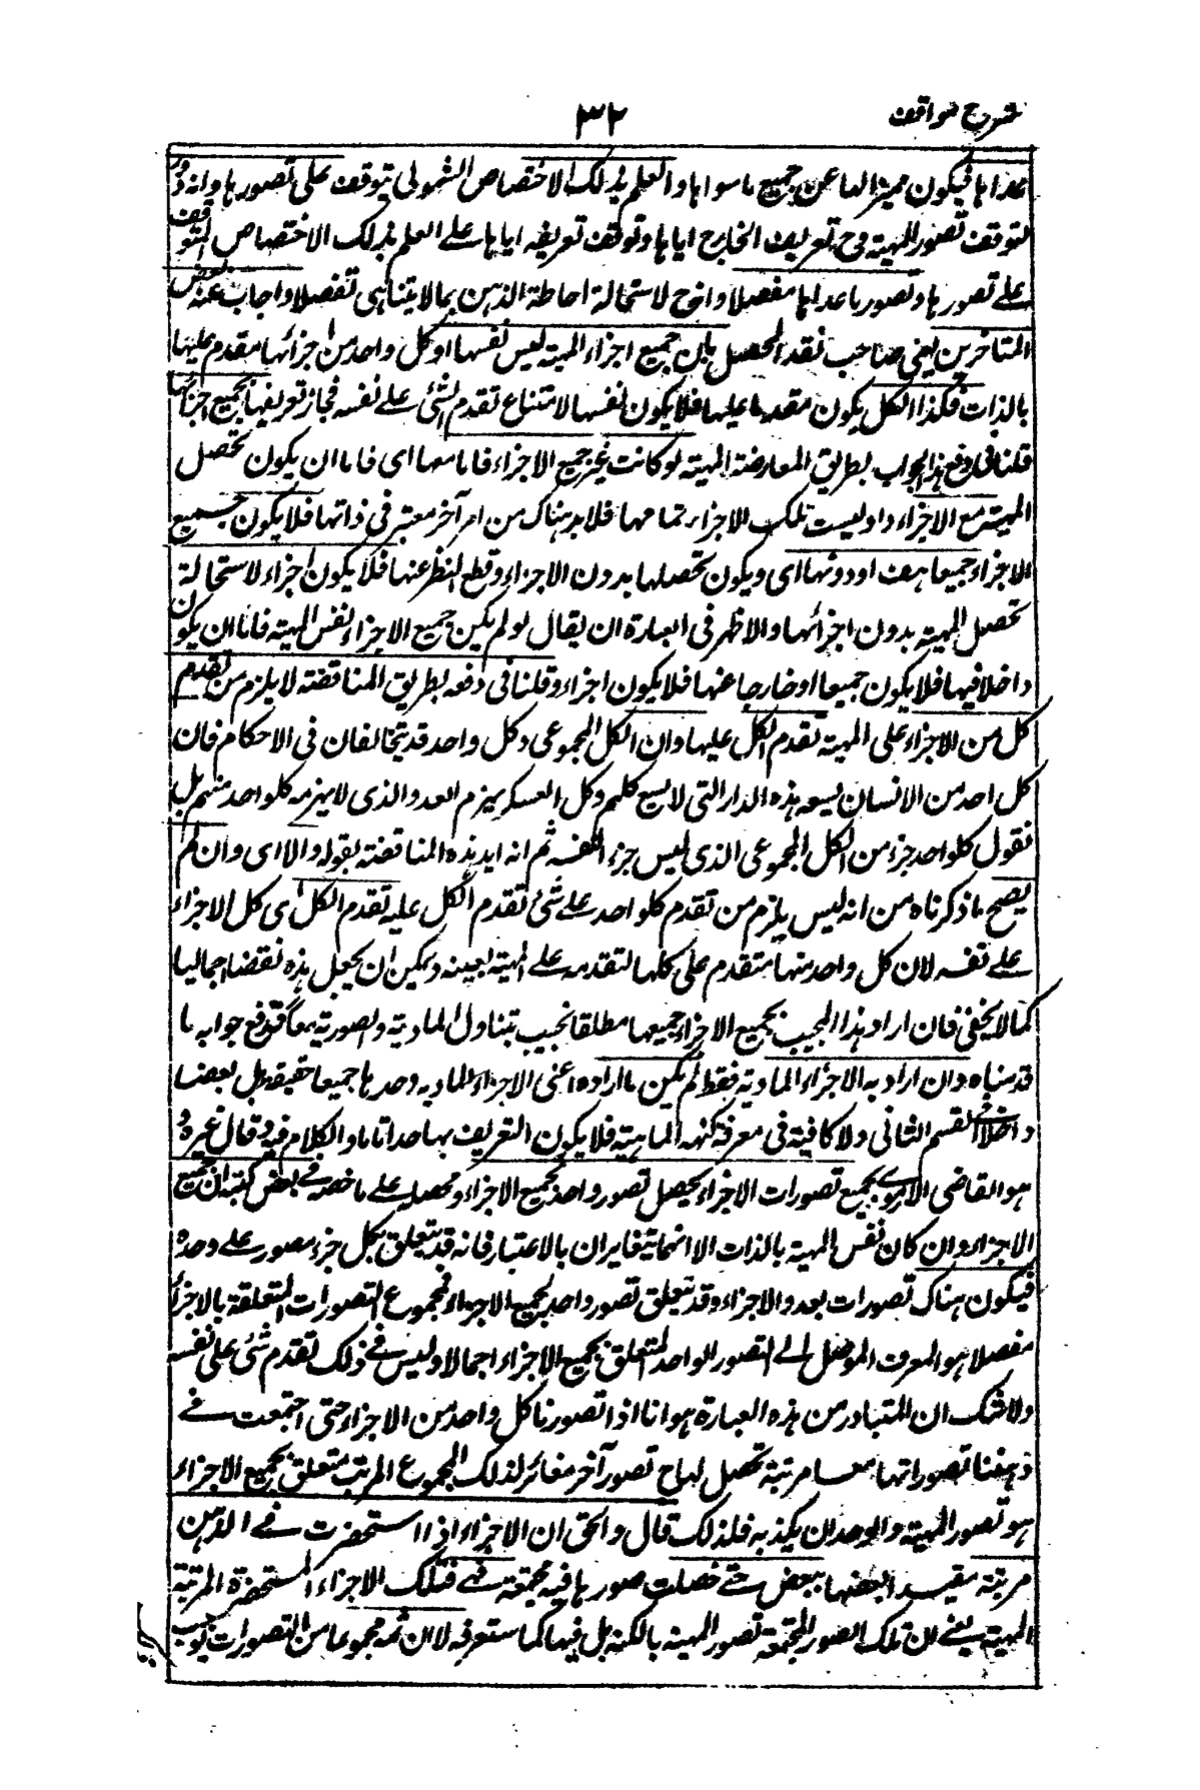 شرح مواقف
٣٢
عداها فيكون مميزا لها عن جميع ما سواها والعلم بذلك الاختصاص الشمولي يتوقف على تصورها وانه دور
لتوقف تصور المهية ح على تعريف الخارج اياها وتوقف تعريفه اياها على العلم بذلك الاختصاص المتوقف
على تصورها وتصور ما عداها مفصلا وانه ح لاستحالة احاطة الذهن بما لا يتناهى تفصيلا واجاب عنه بعض
المتاخرين يعني صاحب نقد المحصل بان جميع اجزاء المهية ليس نفسها اذ كل واحد من اجزائها مقدم عليها
بالذات فكذا الكل يكون مقدما عليها فلا يكون نفسها لامتناع تقدم الشئ على نفسه فجاز تعريفها بجميع اجزائها
قلنا في دفع هذا الجواب بطريق المعارضة المهية لو كانت غير جميع الاجزاء فاما معها اى فاما ان يكون تحصل
المهية مع الاجزاء واذ ليست تلك الاجزاء تمامها فلا بد هناك من امر آخر معتبر في ذاتها فلا يكون جميع
الاجزاء جميعا هف او دونها اى ويكون تحصلها بدون الاجزاء وقطع النظر عنها فلا يكون اجزاء لاستحالة
تحصل المهية بدون اجزائها والاظهر في العبارة ان يقال لو لم يكن جميع الاجزاء نفس المهية فاما ان يكون
داخلا فيها فلا يكون جميعا او خارجا عنها فلا يكون اجزاء وقلنا في دفعه بطريق المناقضة لا يلزم من تقدم
كل من الاجزاء على المهية تقدم الكل عليها وان الكل المجموعي وكل واحد قد يتخالفان في الاحكام فان
كل احد من الانسان يسعه هذه الدار التي لا يسع كلهم وكل العسكر يهزم العدو الذي لا يهزمه كلواحد منهم بل
نقول كلواحد جزء من الكل المجموعي الذي ليس جزء لنفسه ثم انه ايد هذه المناقضة بقوله والا اى وان لم
يصح ما ذكرناه من انه ليس يلزم من تقدم كلواحد على شئ تقدم الكل عليه تقدم الكل اى كل الاجزاء
على نفسه لان كل واحد منها متقدم على كلها لتقدمه على المهية بعينه ويمكن ان يجعل هذه نقضا اجماليا
كما لا يخفى فان اراد هذا المجيب بجميع الاجزاء جميعها مطلقا بحيث يتناول المادية والصورية معا فقد دفع جوابه بما
قدمناه وان اراد به الاجزاء المادية فقط لم يكن ما اراده اعني الاجزاء المادية وحدها جميعا حقيقة بل بعضا
داخلا في القسم الثاني ولا كافية في معرفة كنه الماهية فلا يكون التعريف بها حدا تاما والكلام فيه وقال غيره و
هو القاضي الارموي بجميع تصورات الاجزاء يحصل تصور واحد لجميع الاجزاء ومحصله على ما لخصه في بعض كتبه ان جميع
الاجزاء وان كان نفس المهية بالذات الا انهما يتغايران بالاعتبار فانه قد يتعلق بكل جزء تصور على وحده
فيكون هناك تصورات بعدد الاجزاء وقد يتعلق تصور واحد لجميع الاجزاء فمجموع التصورات المتعلقة بالاجزاء
مفصلا هو المعرف الموصل الى التصور الواحد المتعلق بجميع الاجزاء اجمالا وليس في ذلك تقدم شئ على نفسه
ولا شك ان المتبادر من هذه العبارة هو انا اذا تصورنا كل واحد من الاجزاء حتى اجتمعت في
ذهننا تصوراتها معا مرتبة تحصل لنا ح تصور آخر مغائر لذلك المجموع المرتب متعلق بجميع الاجزاء
هو تصور المهية والوجدان يكذبه فلذلك قال والحق ان الاجزاء اذا استحضرت في الذهن
مرتبة مقيدا بعضها ببعض حتى حصلت صورها فيه مجتمعة فهى فتلك الاجزاء المستحضرة المرتبة
المهية يعني ان تلك الصور المجتمعة تصور المهية بالكنه بل فيها كما ستعرفه لا ان ثمه مجموعا من التصورات